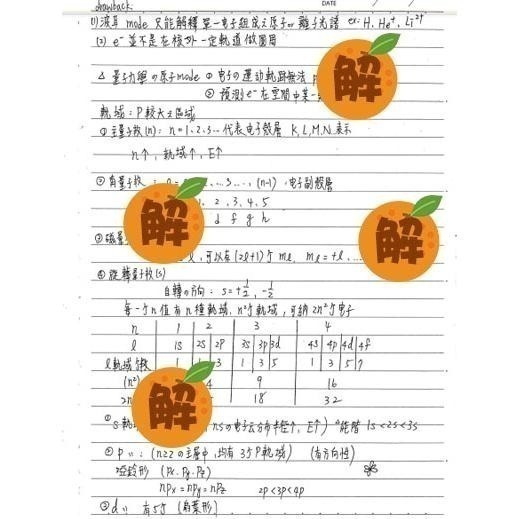 drawback:
DATE
(1) 波耳 mode 只能解釋單一电子組成之原子or離子光譜 ex: H, He⁺, Li²⁺
(2) e⁻ 並不是在核外一定軌道做圓周
△ 量子力學の原子mode ① 电子の運動軌跡無法
② 預測e⁻在空間中某一
解
軌域：P較大之區域
①主量子數(n): n=1、2、3… 代表电子殼層 K,L,M,N 表示
n↑, 軌域↑, E↑
②角量子數: … 2, …3…, (n-1), 电子副殼層
2, 3, 4, 5
d f g h
解
解
③磁量
l, 可以有(2l+1)个 ml, ml = +l, …
④旋轉量子數(s)
自轉の方向: s=+1/2, -1/2
每一个n值有n種軌域, n²个軌域, 可納2n²个电子
n 1 2 3 4
l 1s 2s 2p 3s 3p 3d 4s 4p 4d 4f
l軌域个數 1 1 3 1 3 5 1 3 5 7
(n²) 4 9 16
2n 18 32
解
①s軌 ns の电子云分布半徑↑, E↑) 能階 1s<2s<3s
②p〃: (n≥2 の主層中,均有3个P軌域) (有方向性)
啞鈴形 (Px, Py, Pz)
npx=npy=npz 2p<3p<4p
③d〃 有5个